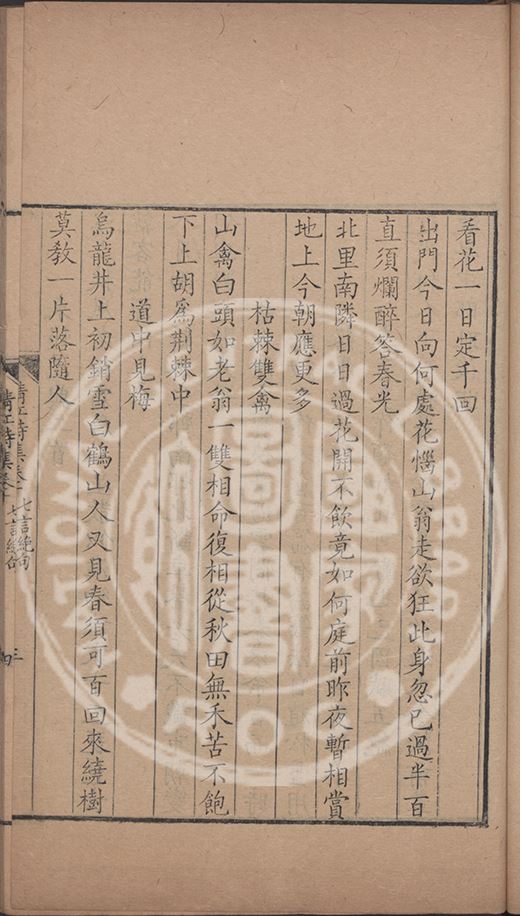 看花一日定千回
出門今日向何處花惱山翁走欲狂此身忽已過半百
直須爛醉答春光
北里南隣日日過花開不飲竟如何庭前昨夜暫相賞
地上今朝應更多
枯棘雙禽
山禽白頭如老翁一雙相命復相從秋田無禾苦不飽
下上胡爲荆棘中
道中見梅
烏龍井上初銷雪白鶴山人又見春須可百回來繞樹
莫教一片落隨人
清江詩集卷十 七言絶句 三
清江詩集卷十 七言絶句 四